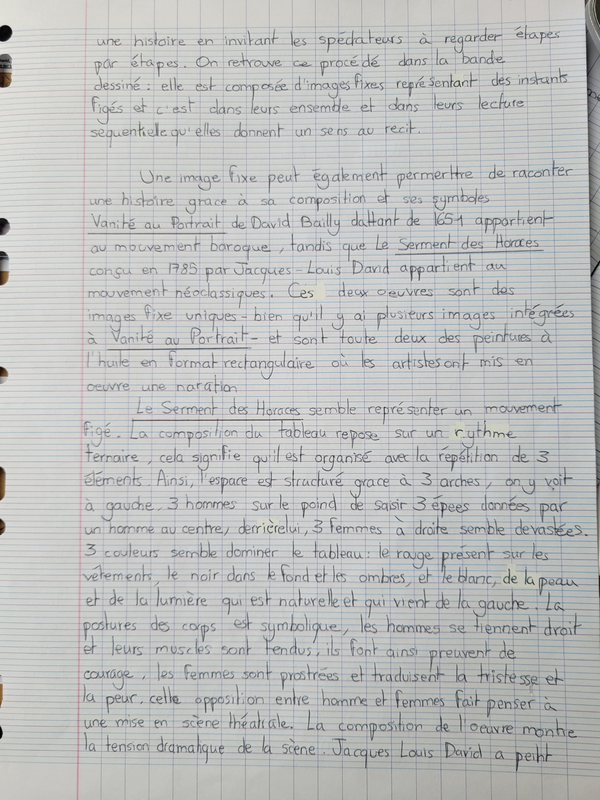 une histoire en invitant les spéctateurs à regarder étapes
par étapes. On retrouve ce procédé dans la bande
dessiné : elle est composée d'images fixes représentant des instants
figés et c'est dans leurs ensemble et dans leurs lecture
sequentielle qu'elles donnent un sens au recit.
Une image fixe peut également permerttre de raconter
une histoire grace à sa composition et ses symboles
Vanité au Portrait de David Bailly dattant de 1651 appartient
au mouvement baroque, tandis que Le Serment des Horaces
conçu en 1785 par Jacques-Louis David appartient au
mouvement néoclassiques. Ces deux oeuvres sont des
images fixe uniques - bien qu'il y ai plusieurs images intégrées
à Vanité au Portrait - et sont toute deux des peintures à
l'huile en format rectangulaire où les artistes ont mis en
oeuvre une naration
Le Serment des Horaces semble représenter un mouvement
figé. La composition du tableau repose sur un rythme
ternaire, cela signifie qu'il est organisé avec la repétition de 3
éléments. Ainsi, l'espace est structuré grace à 3 arches, on y voit
à gauche, 3 hommes sur le poind de saisir 3 épees données par
un homme au centre, derrière lui, 3 femmes à droite semble devastées.
3 couleurs semble dominer le tableau : le rouge présent sur les
vêtements, le noir dans le fond et les ombres, et le blanc, de la peau
et de la lumière qui est naturelle et qui vient de la gauche. La
postures des corps est symbolique, les hommes se tiennent droit
et leurs muscles sont tendus, ils font ainsi preuvent de
courage, les femmes sont prostrées et traduisent la tristesse et
la peur, cette opposition entre homme et femmes fait penser à
une mise en scène théatrale. La composition de l'oeuvre montre
la tension dramatique de la scène. Jacques Louis David a peint